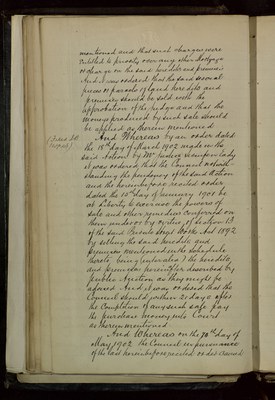 mentioned and that such charges were
entitled to priority over any other Mortgage
or charge on the said heredits and premises
And it was ordered that the said several
pieces or parcels of land heredits and
premises should be sold with the
approbation of the Judge and that the
moneys produced by such sale should
be applied as therein mentioned
And Whereas by an order dated
the 18th day of March 1902 made in the
said Action by Mr Justice
it was ordered that the Council notwith
standing the pendency of the said Action
and the hereinbefore recited order
dated the day of January 1902 be
at liberty to exercise the powers of
sale and other remedies conferred on
them under or by virtue of
of the said Private Street Works Act 1892
by selling the said heredits and
premises mentioned in the Schedule
thereto being (inter alia) the heredits
and premises hereinafter described by
public Auction as they might be
advised And it was ordered that the
Council should within 21 days after
the Completion of any such sale pay
the purchase money into Court
as therein mentioned
And Whereas on the 30th day of
May 1902 the Council in pursuance
of the last hereinbefore recited order caused